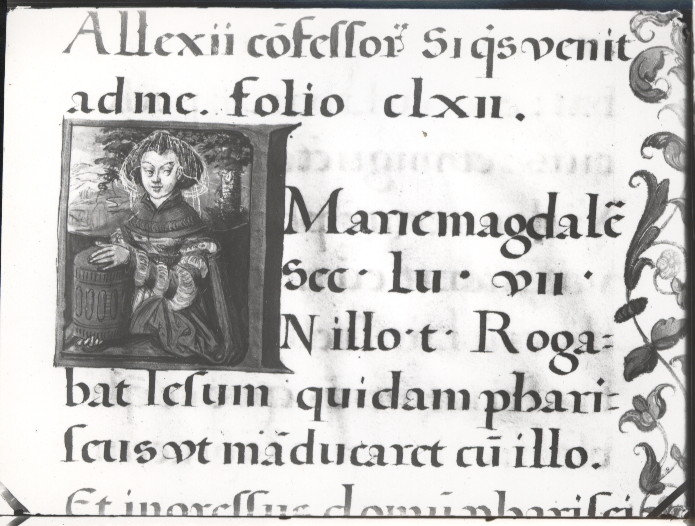 Allexii cõfessor̃ Si q̃s venit
ad me. folio clxii.
Marie magdalẽ
Sec· Lu· vii·
IN illo·t· Roga=
bat Iesum quidam phari=
seus vt mãducaret cũ illo.
Et ingressus domũ pharisei